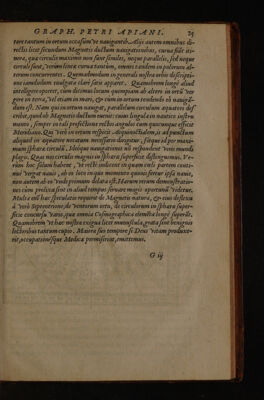 GRAPH. PETRI APIANI. 25
tore tantum in ortum occasúmve nauigant. Alijs autem omnibus di-
rectis licet secundum Magnetis ductum nauigationibus, curua fiat iti-
nera, quæ circulis maximis non sunt similes, neque parallelis, sed neque
circuli sunt, verùm linea curua tantum, omnes tandem in polorum al-
terum concurrentes. Quemadmodum in generali nostra orbis descripti-
one iamdudum vulgata clarè satis apparet. Quamobrem longè aliud
intelligere oportet, cum dicimus locum quempiam ab altero in ortũ ver
gere in terra, vel etiam in mari, & cum in ortum tendendo eò nauigã-
dum est. Nam qui in ortum nauigat, parallelum circulum æquatori
cribit, quod ob Magnetis ductum euenit: cuius lingula in nautico instru
mento, semper in tali profectione rectos angulos cum quocunque efficit
Meridiano. Qui verò in ortum respicit Æquinoctialem, is ad punctum
aliquod in æquatore notatum necessariò dirigitur, síque ad per maxi-
mum sphæræ circulũ. Itaque nauigationes nõ respondent veris mundi
plagis. Quas nos circulis magnis in sphæræ superficie distinguimus. Ve-
rùm hoc saluũ habent, vt rectè indicent in quam cœli partem conti-
nuò vergat nauis, ab eo loco in quo momento quouis fertur ipsa nauis,
non autem ab eo vnde primum delata est. Harum rerum demonstratio-
nes cùm prolixæ sint in aliud tempus seruare magis oportunũ videtur.
Multa enĩ hæc speculatio requirit de Magnetis natura, & eius deflexu
à vero Septentrione, de ventorum ortu, de circulorum in sphæræ super-
ficie concursu varij, quæ omnia Cosmographica elementa longè superãt.
Quamobrem vt hæc nostra exigua licet munuscula, grata sint benignis
lectoribus tantum cupio. Maiora suo tempore si Deus vitam produxe-
rit, occupationésque Medicæ permiserint, emittemus.
G iij